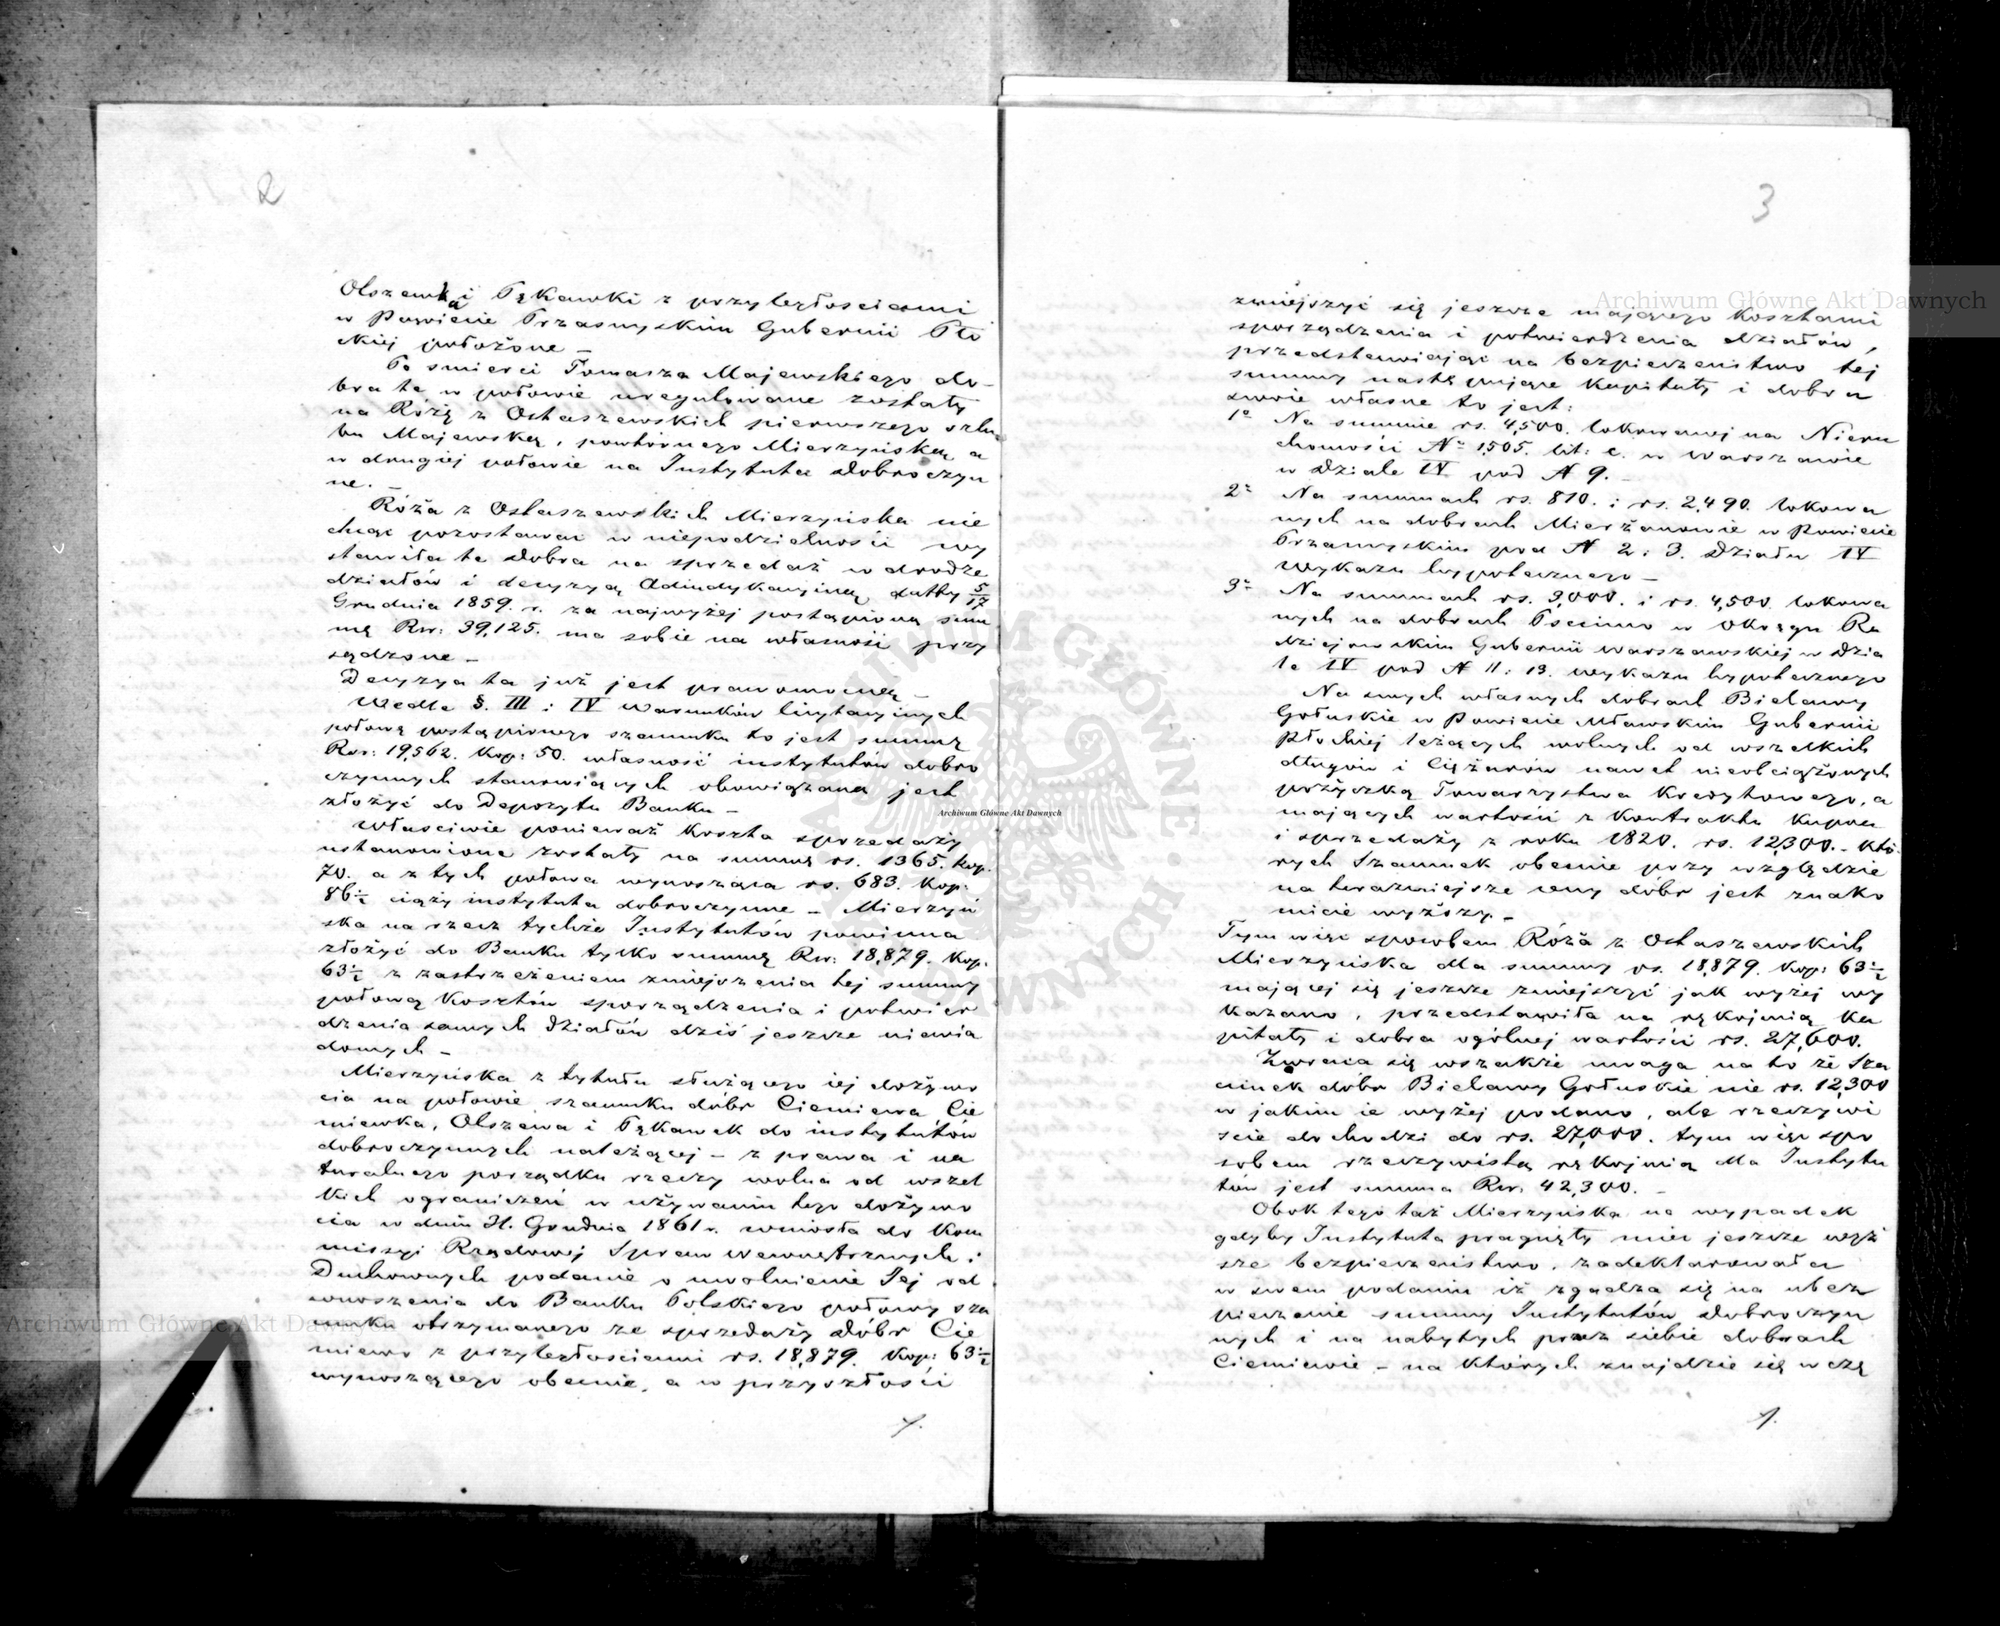 2
Olszewka i Pękawki z przyległościami
w Powiecie Przasnyskim Gubernii Płoc
kiej położone –
Po śmierci Tomasza Majewskiego do-
bra te w połowie uregulowane zostały
na Różę z Ostaszewskich pierwszego szlu
bu Majewską, powtórnego Mierzyńską a
w drugiej połowie na Instytuta dobroczyn
ne. –
Róża z Ostaszewskich Mierzyńska nie
chcąc pozostawać w niepodzielności wy
stawiła te dobra na sprzedaż w drodze
działów i decyzyą Adiudykacyiną datty 5/17
Grudnia 1859. r. za najwyżej postąpioną sum
mę Rsr: 39,125. ma sobie na własność przy
sądzone –
Decyzya ta już jest prawomocną –
Wedle §. III i IV Warunków licytacyinych
połowę postąpionego szacunku to jest summę
Rsr: 19,562. kop: 50. własność instytutów dobro
czynnych stanowiących obowiązana jest
złożyć do Depozytu Banku –
Właściwie ponieważ koszta sprzedaży
ustanowione zostały na summę rs. 1365. kop.
70. a z tych połowa wynosząca rs. 683. kop:
86½ ciąży instytuta dobroczynne – Mierzyń
ska na rzecz tychże Instytutów powinna
złożyć do Banku tylko summę Rsr: 18,879. kop.
63½ z zastrzeżeniem zmiejszenia tej summy
połową kosztów sporządzenia i potwier
dzenia samych działów dziś jeszcze niewia
domych –
Mierzyńska z tytułu służącego jej dożywo
cia na połowie szacunku dóbr Ciemiewa Cie
miewka, Olszewa i Pękawek do instytutów
dobroczynnych należącej – z prawa i na
turalnego porządku rzeczy wolna od wszel
kich ograniczeń w używaniu tego dożywo
cia w dniu 31. Grudnia 1861 r. wniosła do Kom
missyi Rządowej Spraw Wewnętrznych i
Duchownych podanie o uwolnienie Jej od
wnoszenia do Banku Polskiego połowy sza
cunku otrzymanego ze sprzedaży dóbr Cie
miewo z przyległościami rs. 18,879. kop: 63½
wynoszącego obecnie, a w przyszłości
3
zmiejszyć się jeszcze mającego kosztami
sporządzenia i potwierdzenia działów,
przedstawiając na bezpieczeństwo tej
summy następujące kapitały i dobra
swoie własne to jest:
1° Na summie rs. 4,500. lokowanej na Nieru
chomości N° 1505. lit: c. w Warszawie
w dziale IV pod N 9. –
2° Na summach rs. 810. i rs. 2,490. lokowa
nych na dobrach Mierzanowie w Powiecie
Przasnyskim pod N 2 i 3. działu IV
wykazu hypotecznego –
3° Na summach rs. 3,000. i rs. 4,500. lokowa
nych na dobrach Pścinno w Okręgu Ra
dziejowskim Gubernii Warszawskiej w dzia
le IV pod N 11 i 13. wykazu hypotecznego
Na swych własnych dobrach Bielawy
Gołuskie w Powiecie Mławskim Gubernii
Płockiej leżących wolnych od wszelkich
długów i ciężarów nawet nieobciążonych
pożyczką Towarzystwa Kredytowego, a
mających wartość z kontraktu kupna
i sprzedaży z roku 1820. rs. 12,300. – któ
rych szacunek obecnie przy względzie
na teraźniejsze ceny dóbr jest znako
micie wyższy. –
Tym więc sposobem Róża z Ostaszewskich
Mierzyńska dla summy rs. 18,879. kop: 63½
mającej się jeszcze zmiejszyć jak wyżej wy
kazano, przedstawiła na rękojmią ka
pitały i dobra ogólnej wartości rs. 27,600.
Zwraca się wszakże uwaga na to że sza
cunek dóbr Bielawy Gołuskie nie rs. 12,300
w jakim ie wyżej podano, ale rzeczywi
ście dochodzi do rs. 27,000. tym więc spo
sobem rzeczywistą rękojmią dla Instytu
tów jest summa Rsr. 42,300. –
Obok tego taż Mierzyńska na wypadek
gdyby Instytuta pragnęły mieć jeszcze więk
sze bezpieczeństwo, zadeklarowała
w swem podaniu iż zgadza się na ubez
pieczenie summy Instytutów dobroczyn
nych i na nabytych przez siebie dobrach
Ciemiewie – na których znajdzie się w czę
Archiwum Główne Akt Dawnych
Archiwum Główne Akt Dawnych
Archiwum Główne Akt Dawnych
ARCHIWUM GŁÓWNE AKT DAWNYCH